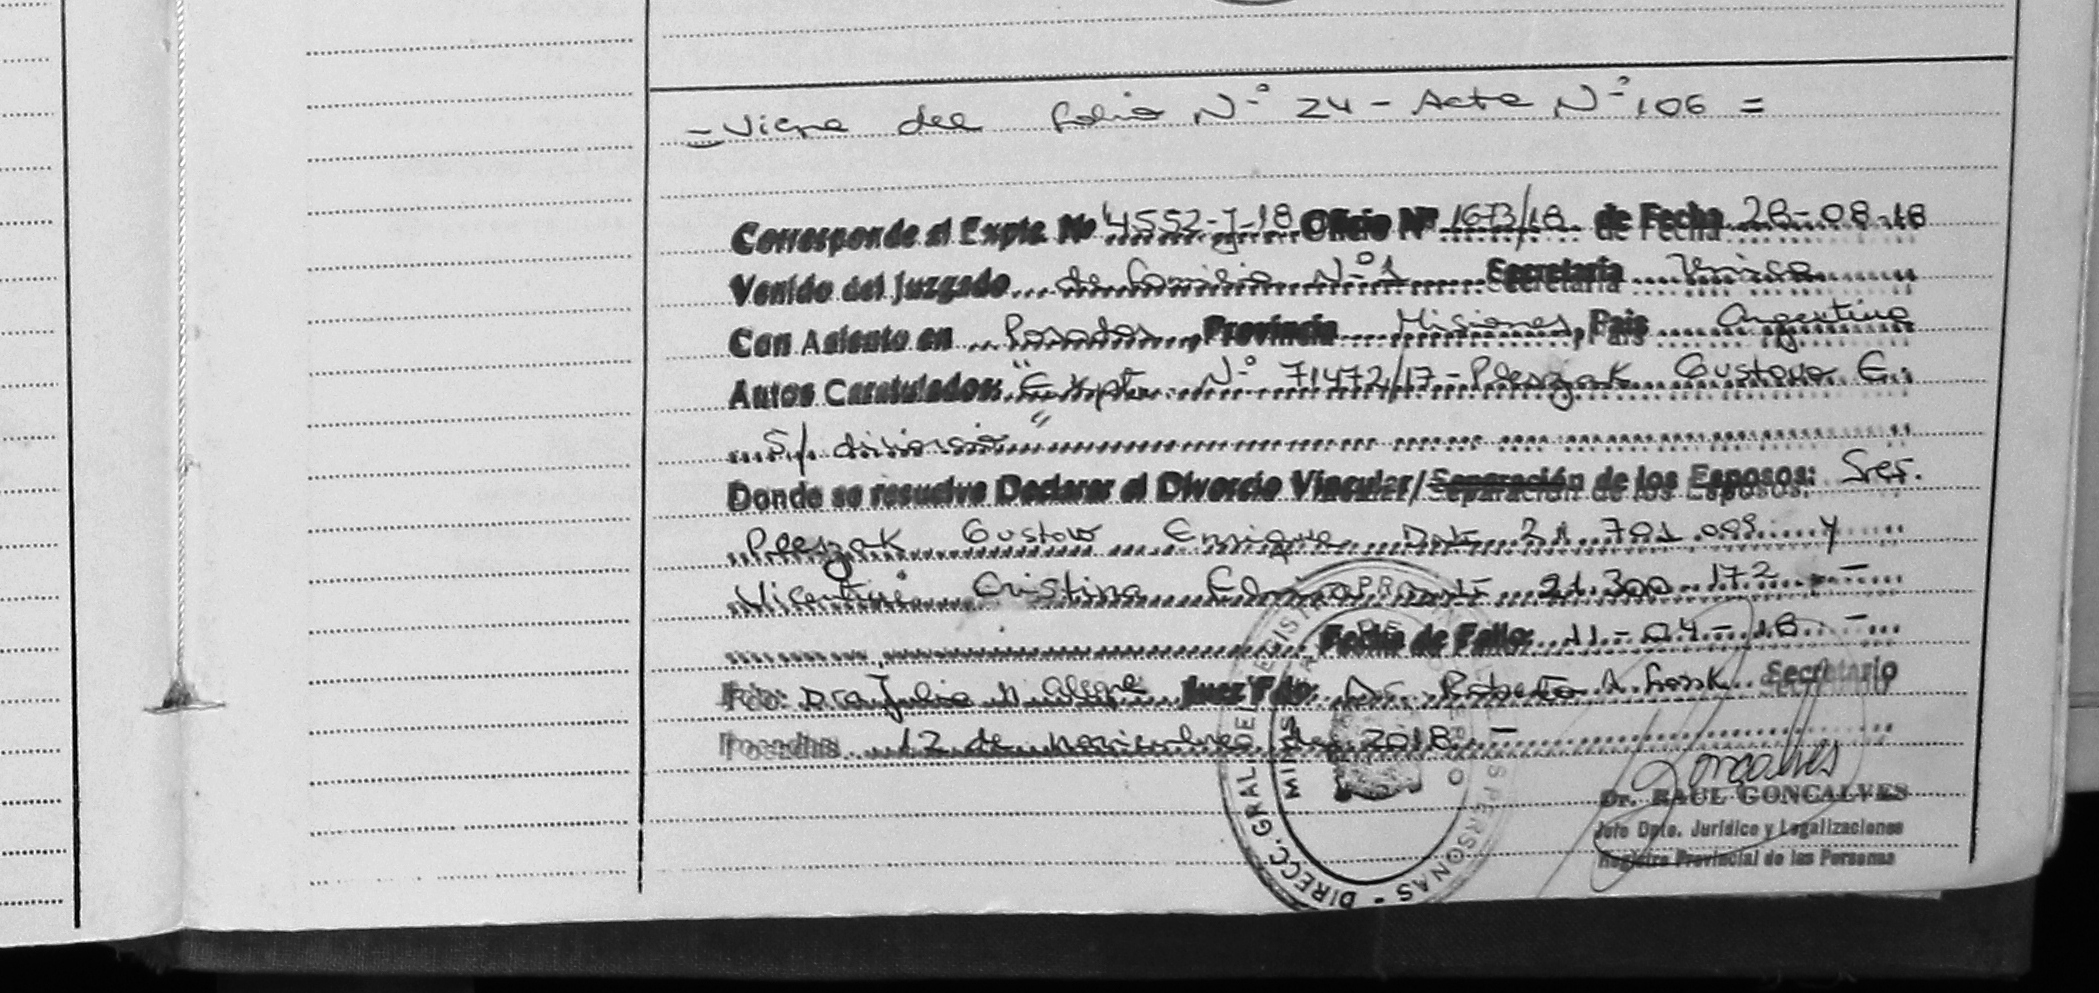 - Viene del folio N° 24 - Acta N° 106 =
Corresponde al Expte. No 4552-J-18 Oficio Nº 1673/18 de Fecha 28-08-18
Venido del Juzgado de familia N° 1 Secretaría Unica
Con Asiento en Posadas, Provincia Misiones, Pais Argentina
Autos Caratulados: "Expte. N° 71472/17 - Pleszak Gustavo E.
S/ divorcio"
Donde se resuelve Declarar el Divorcio Vincular/Separación de los Esposos: Sres.
Pleszak Gustavo Enrique 21.701.099 y
Vicentini Cristina 21.300.172 . -
Fecha de Fallo: 11-04-18. -
Fdo: Dra Julia Juez Fdo: Dr. Roberto A. Secretario
Posadas 12 de noviembre de 2018. -
Goncalves
Dr. RAUL GONCALVES
Jefe Dpto. Jurídico y Legalizaciones
Registro Provincial de las Personas
DIRECC. GRAL. DE REGISTRO PERSONAS